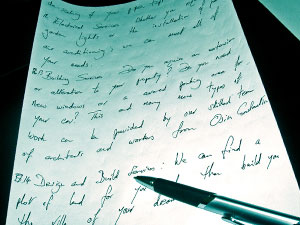 the making of your
* Electrical Services - Whether you opt for
garden lights or the installation of
air conditioning, we can meet all of
your needs
Building Services - Do you require an extension
or alteration to your property? Do you need
new windows or a covered parking area for
your car? This and many more types of
work can be provided by our skilled team
of architects and workers from
Design and Build Services: We can find a
plot of land for you and then build you
the villa of your dreams